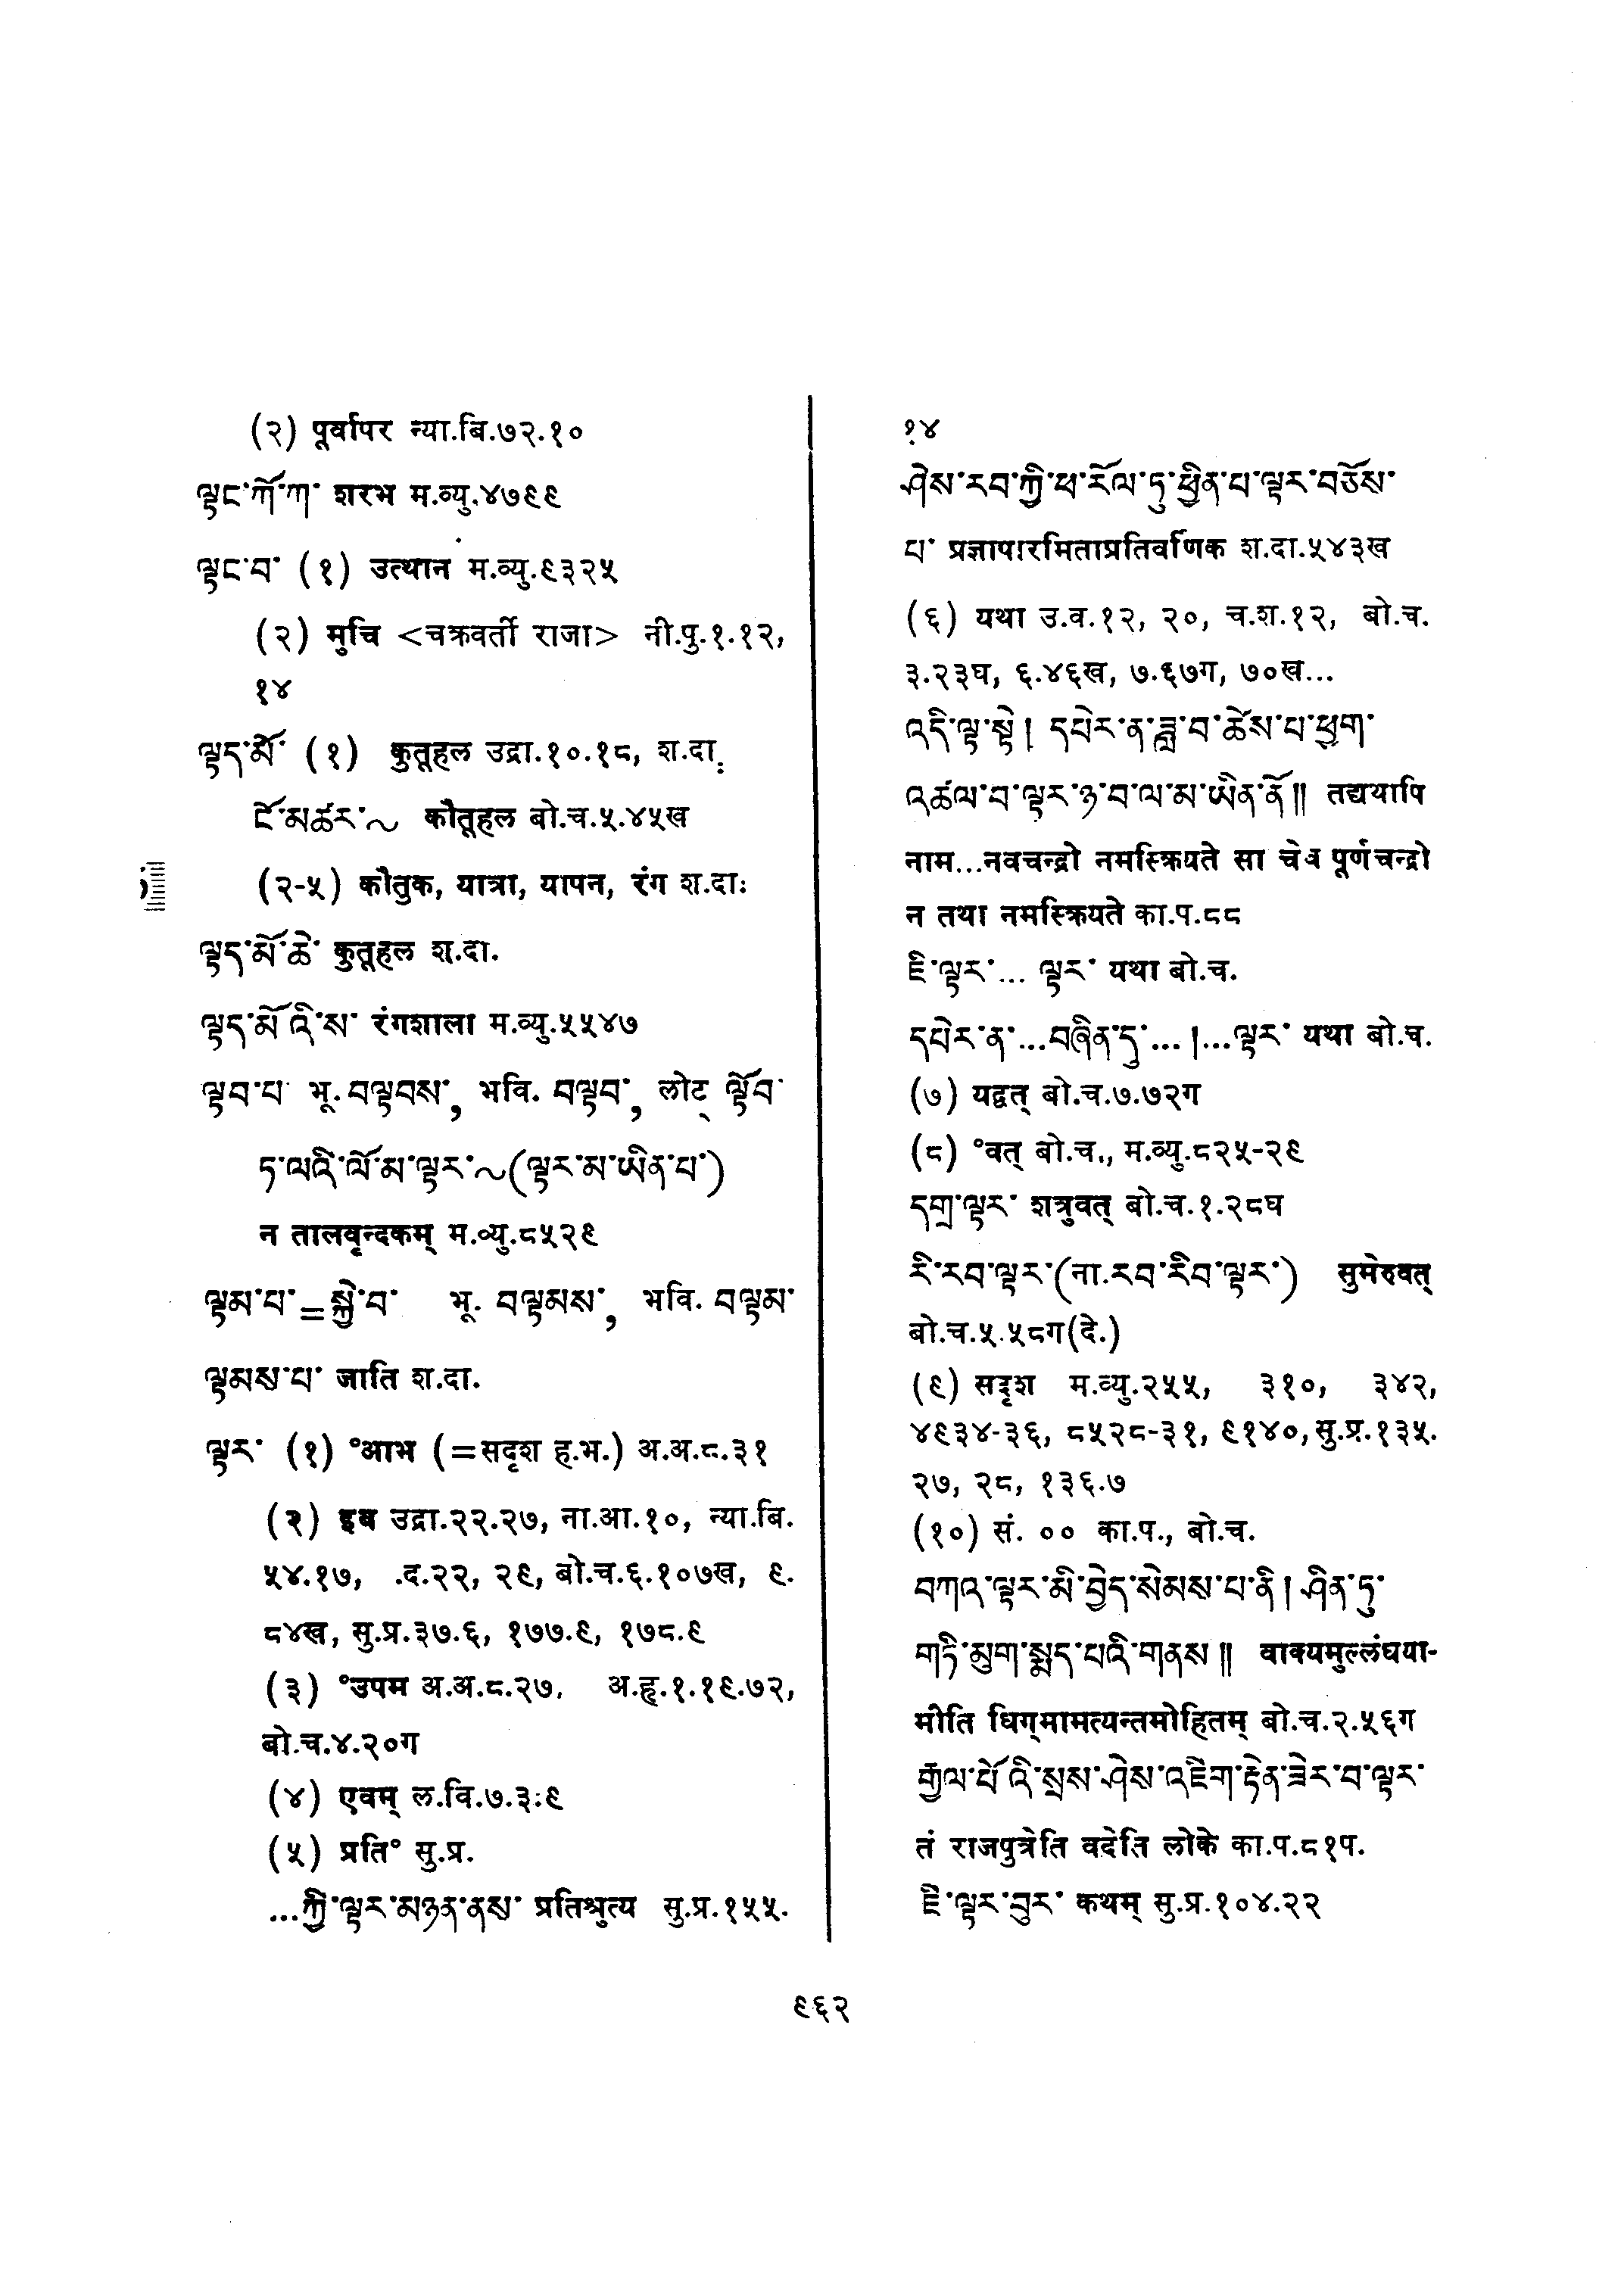 (२) पूर्वापर न्या.बि.७२.१०
ལྟང་ཀོ་ཀ་ शरभ म.व्यु.४७९९
ལྟང་བ་ (१) उत्थान म.व्यु.९३२५
(२) मुचि <चक्रवर्ती राजा> नी.पु.१.१२,
१४
ལྟད་མོ་ (१) कुतूहल उद्रा.१०.१८, श.दा.
ངོ་མཚར་~ कौतूहल बो.च.५.४५ख
(२-५) कौतुक, यात्रा, यापन, रंग श.दा.
ལྟད་མོ་ཆེ་ कुतूहल श.दा.
ལྟད་མོ་འི་ས་ रंगशाला म.व्यु.५५४७
ལྟབ་པ་ भू. བལྟབས་, भवि. བལྟབ་, लोट् ལྟོབ་
ཏ་ལའི་ལོ་མ་ལྟར་~(ལྟར་མ་ཡིན་པ་)
न तालवृन्दकम् म.व्यु.८५२९
ལྟམ་པ་=སྐྱེ་བ་ भू. བལྟམས་, भवि. བལྟམ་
ལྟམས་པ་ जाति श.दा.
ལྟར་ (१) °आभ (=सदृश ह.भ.) अ.अ.८.३१
(२) इव उद्रा.२२.२७, ना.आ.१०, न्या.बि.
५४.१७, .द.२२, २९, बो.च.६.१०७ख, ९.
८४ख, सु.प्र.३७.६, १७७.९, १७८.९
(३) °उपम अ.अ.८.२७, अ.हृ.१.१९.७२,
बो.च.४.२०ग
(४) एवम् ल.वि.७.३:९
(५) प्रति° सु.प्र.
...ཀྱི་ལྟར་མཉན་ནས་ प्रतिश्रुत्य सु.प्र.१५५.
१४
ཤེས་རབ་ཀྱི་ཕ་རོལ་ཏུ་ཕྱིན་པ་ལྟར་བཅོས་
པ་ प्रज्ञापारमिताप्रतिर्वाणक श.दा.५४३ख
(६) यथा उ.व.१२, २०, च.श.१२, बो.च.
३.२३घ, ६.४६ख, ७.६७ग, ७०ख...
འདི་ལྟ་སྟེ། དཔེར་ན་ཟླ་བ་ཚེས་པ་ཕྱག་
འཚལ་བ་ལྟར་ཉ་བ་ལ་མ་ཡིན་ནོ༎ तद्यथापि
नाम...नवचन्द्रो नमस्क्रियते सा चेव पूर्णचन्द्रो
न तथा नमस्क्रियते का.प.८८
ཇི་ལྟར་... ལྟར་ यथा बो.च.
དཔེར་ན་...བཞིན་དུ་... །...ལྟར་ यथा बो.च.
(७) यद्वत् बो.च.७.७२ग
(८) °वत् बो.च., म.व्यु.८२५-२९
དགྲ་ལྟར་ शत्रुवत् बो.च.१.२८घ
རི་རབ་ལྟར་(ना.རབ་རིབ་ལྟར་) सुमेरुवत्
बो.च.५.५८ग(दे.)
(९) सदृश म.व्यु.२५५, ३१०, ३४२,
४९३४-३६, ८५२८-३१, ९१४०, सु.प्र.१३५.
२७, २८, १३६.७
(१०) सं. ०० का.प., बो.च.
བཀའ་ལྟར་མི་བྱེད་སེམས་པ་ནི། ཤིན་ཏུ་
གཏི་མུག་སྨད་པའི་གནས༎ वाक्यमुल्लंघया-
मीति धिग्मामत्यन्तमोहितम् बो.च.२.५६ग
རྒྱལ་པོ་འི་སྲས་ཤེས་འཇིག་རྟེན་ཟེར་བ་ལྟར་
तं राजपुत्रेति वदेति लोके का.प.८१प.
ཇི་ལྟར་བུར་ कथम् सु.प्र.१०४.२२
९६२